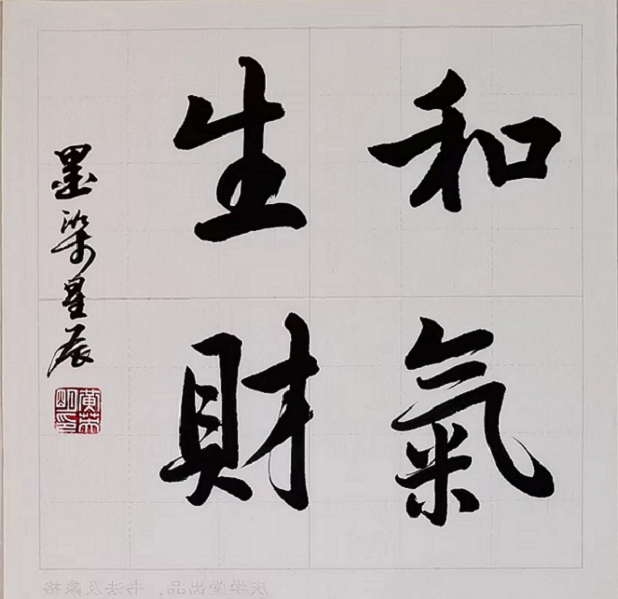 和氣
生財
墨染星辰